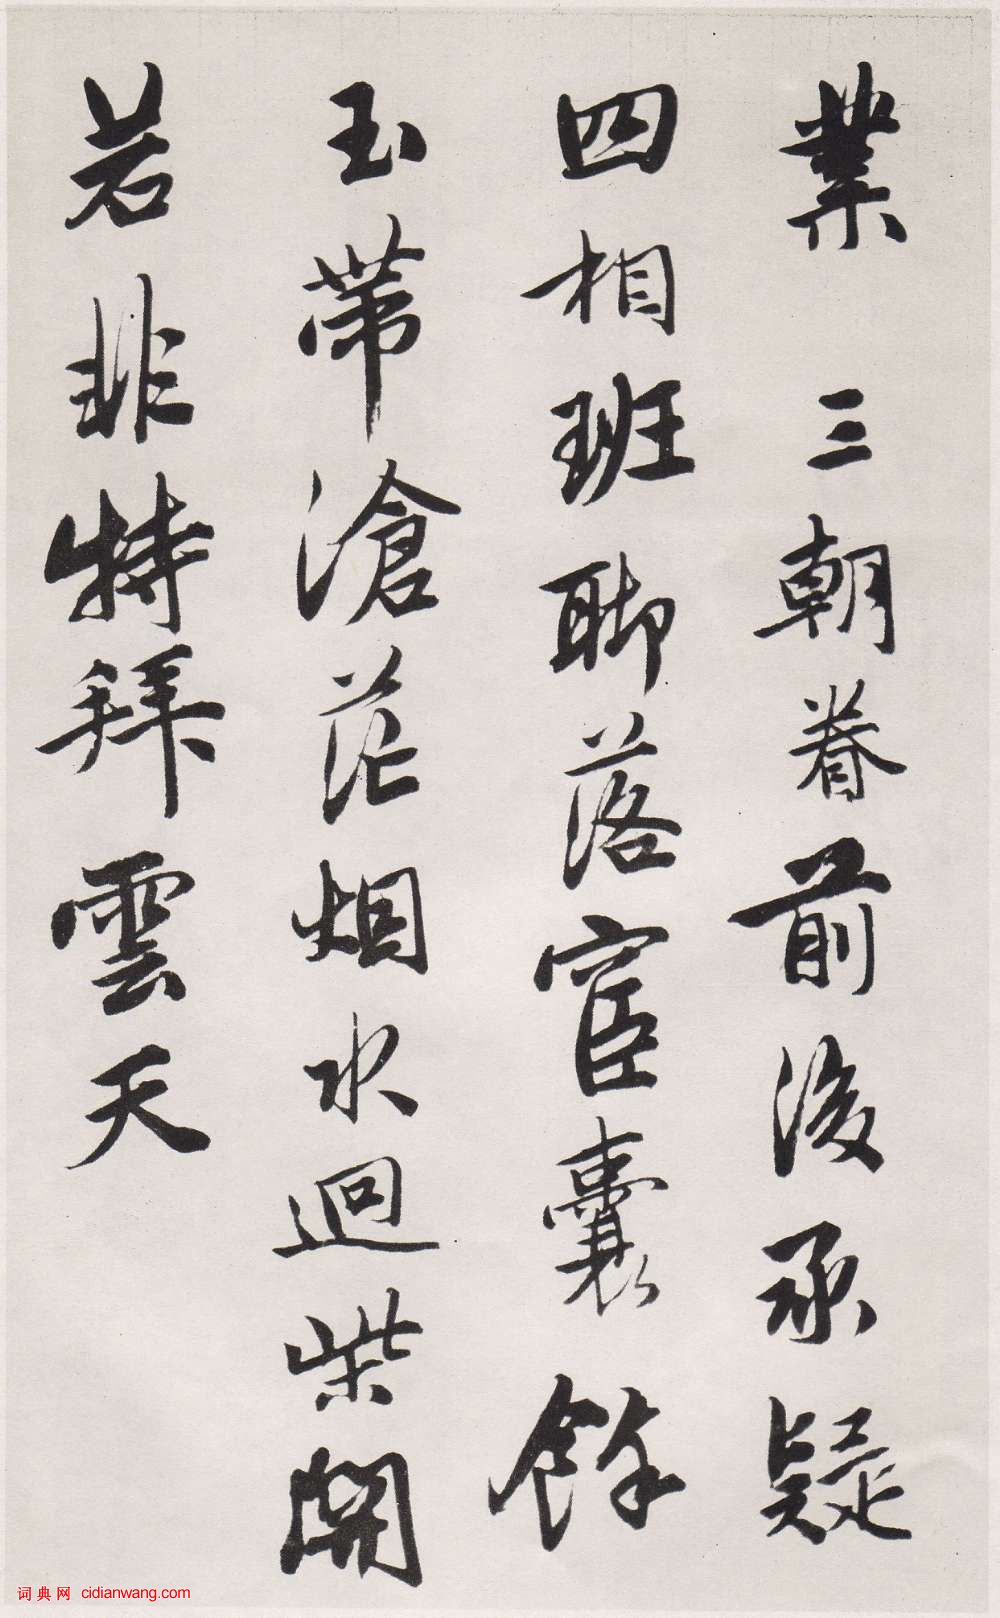 業 三朝眷前後承疑
四相班聊落宦囊餘
玉帶滄茫烟水迴柴關
若非特拜雲天
词典网 cidianwang.com